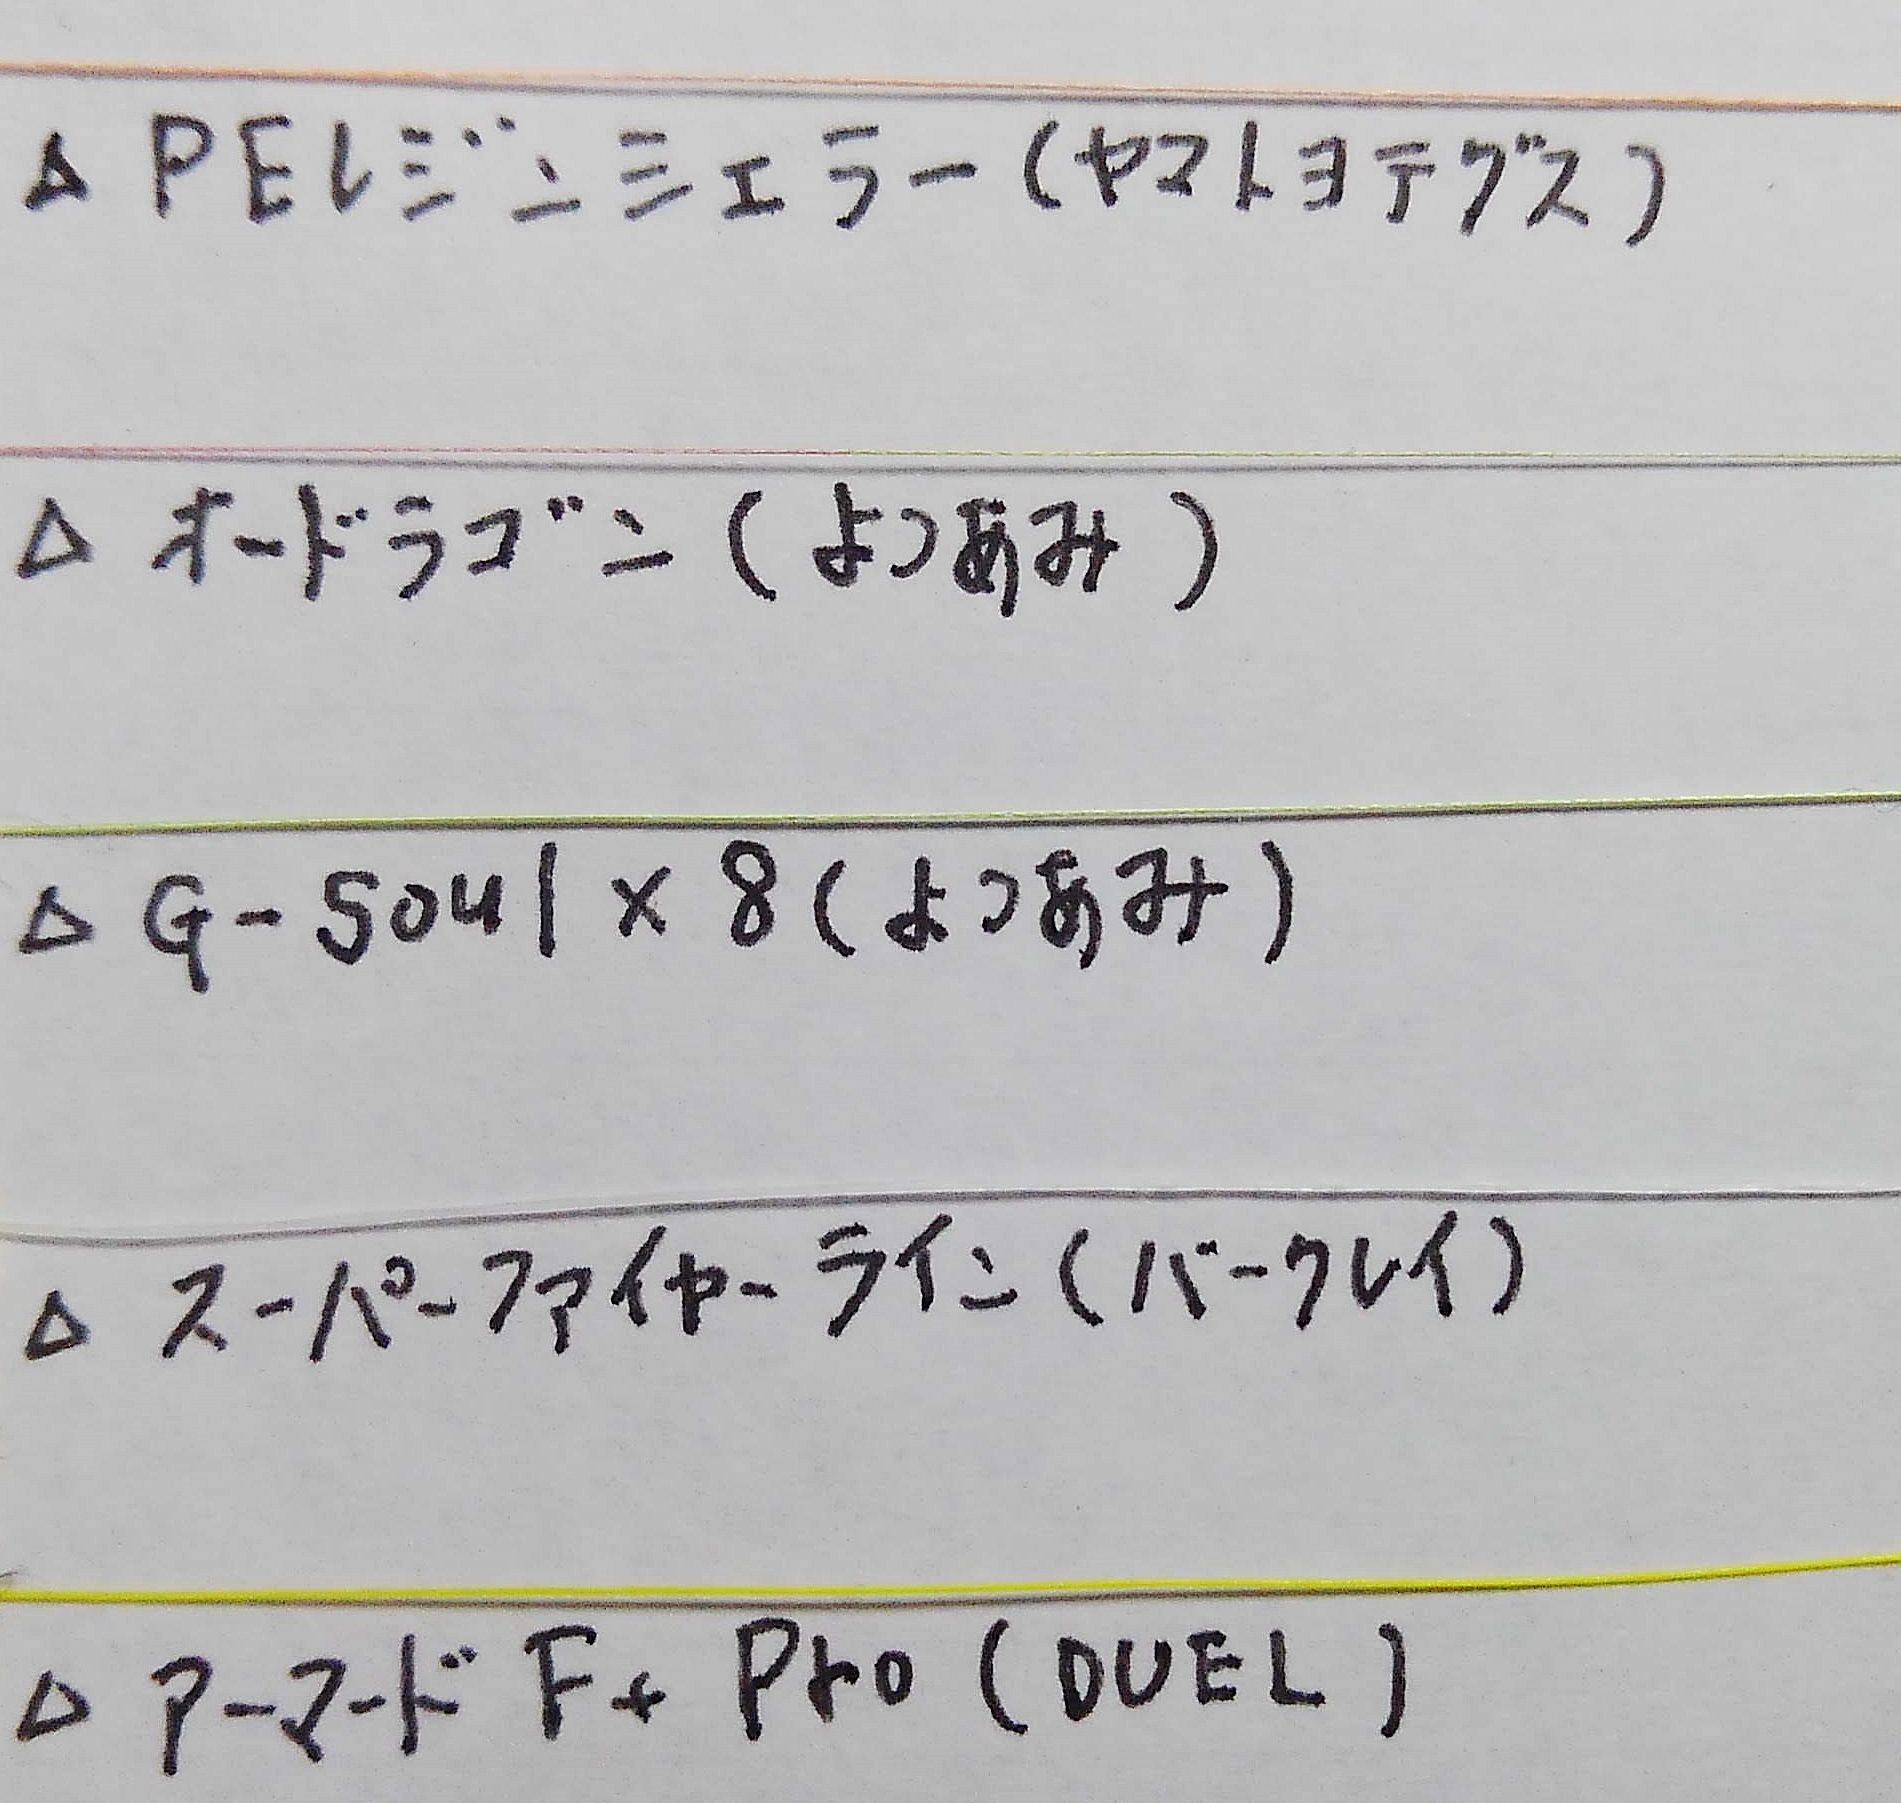 △ PEレジンシェラー(ヤマトヨテグス)
△ オードラゴン(よつあみ)
△ G-soul×8(よつあみ)
△ スーパーファイヤーライン(バークレイ)
△ アーマードF+ Pro(DUEL)